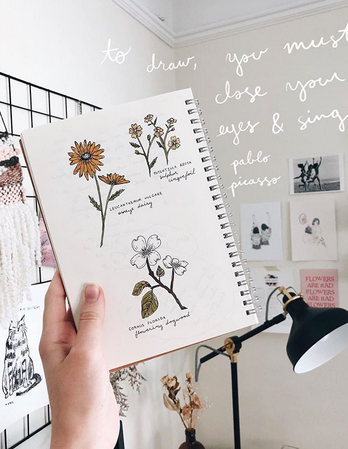 to draw, you must
close your
eyes & sing
pablo
picasso
POTENTILLA RECTA
sulphur
cinquefoil
LEUCANTHEMUM VULGARE
oxeye daisy
CORNUS FLORIDA
flowering dogwood
FLOWERS
ARE RAD
FLOWERS
ARE RAD